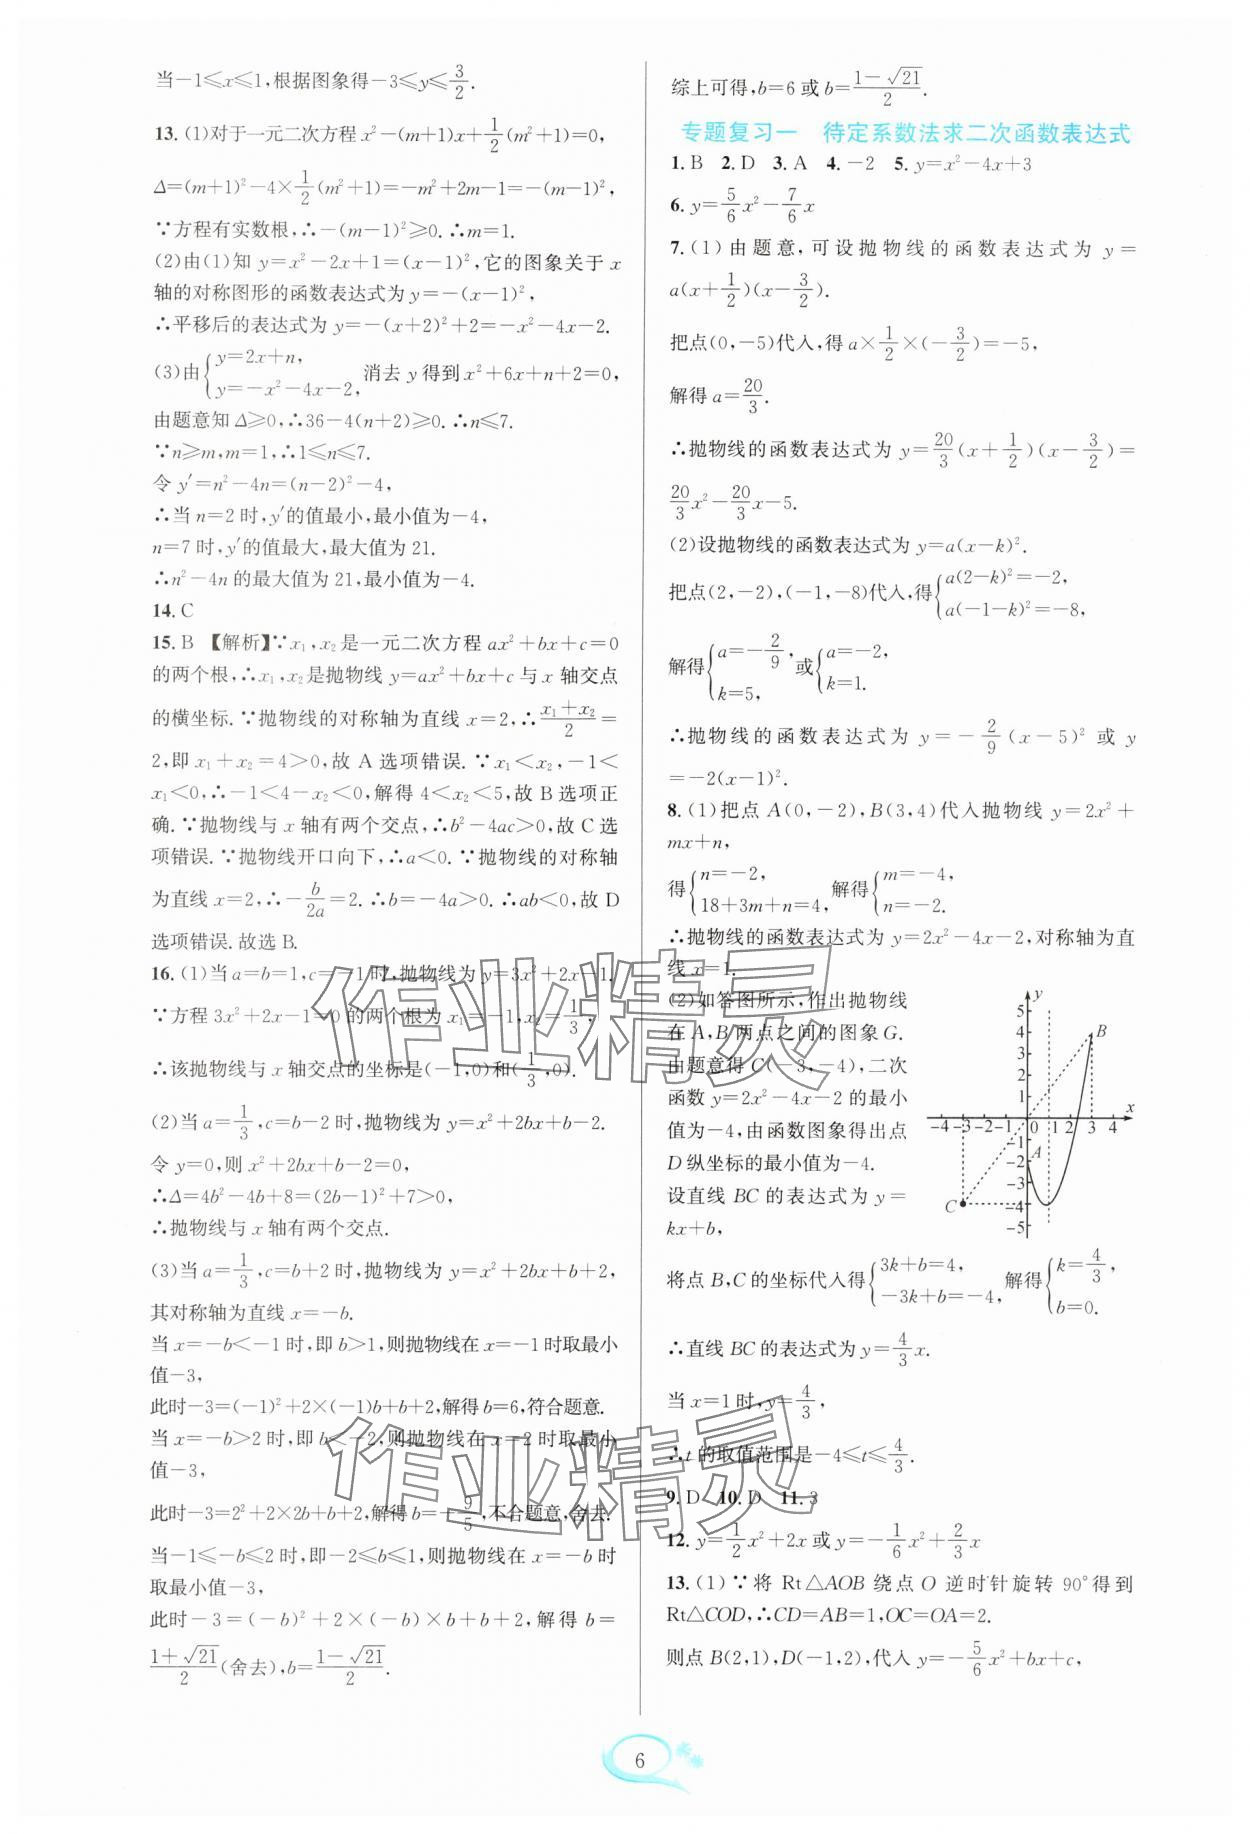 当-1≤x≤1,根据图象得-3≤y≤3/2.
13. (1)对于一元二次方程 x²-(m+1)x+1/2(m²+1)=0,
Δ=(m+1)²-4×1/2(m²+1)=-m²+2m-1=-(m-1)²,
∵方程有实数根,∴-(m-1)²≥0.∴m=1.
(2)由(1)知 y=x²-2x+1=(x-1)²,它的图象关于 x
轴的对称图形的函数表达式为 y=-(x-1)²,
∴平移后的表达式为 y=-(x+2)²+2=-x²-4x-2.
(3)由{y=2x+n, y=-x²-4x-2, 消去 y 得到 x²+6x+n+2=0,
由题意知 Δ≥0,∴36-4(n+2)≥0.∴n≤7.
∵n≥m,m=1,∴1≤n≤7.
令 y′=n²-4n=(n-2)²-4,
∴当 n=2 时,y′的值最小,最小值为-4,
n=7 时,y′的值最大,最大值为 21.
∴n²-4n 的最大值为 21,最小值为-4.
14. C
15. B 【解析】∵x₁,x₂是一元二次方程 ax²+bx+c=0
的两个根,∴x₁,x₂是抛物线 y=ax²+bx+c 与 x 轴交点
的横坐标.∵抛物线的对称轴为直线 x=2,∴(x₁+x₂)/2=
2,即 x₁+x₂=4>0,故 A 选项错误.∵x₁<x₂,-1<
x₁<0,∴-1<4-x₂<0,解得 4<x₂<5,故 B 选项正
确.∵抛物线与 x 轴有两个交点,∴b²-4ac>0,故 C 选
项错误.∵抛物线开口向下,∴a<0.∵抛物线的对称轴
为直线 x=2,∴-b/2a=2.∴b=-4a>0.∴ab<0,故 D
选项错误.故选 B.
16. (1)当 a=b=1,c=-1 时,抛物线为 y=3x²+2x-1.
∵方程 3x²+2x-1=0 的两个根为 x₁=-1,x₂=1/3,
∴该抛物线与 x 轴交点的坐标是(-1,0)和(1/3,0).
(2)当 a=1/3,c=b-2 时,抛物线为 y=x²+2bx+b-2.
令 y=0,则 x²+2bx+b-2=0,
∴Δ=4b²-4b+8=(2b-1)²+7>0,
∴抛物线与 x 轴有两个交点.
(3)当 a=1/3,c=b+2 时,抛物线为 y=x²+2bx+b+2,
其对称轴为直线 x=-b.
当 x=-b<-1 时,即 b>1,则抛物线在 x=-1 时取最小
值-3,
此时-3=(-1)²+2×(-1)b+b+2,解得 b=6,符合题意.
当 x=-b>2 时,即 b<-2,则抛物线在 x=2 时取最小
值-3,
此时-3=2²+2×2b+b+2,解得 b=-9/5,不合题意,舍去.
当-1≤-b≤2 时,即-2≤b≤1,则抛物线在 x=-b 时
取最小值-3,
此时-3=(-b)²+2×(-b)×b+b+2,解得 b=
(1+√21)/2(舍去),b=(1-√21)/2.
综上可得,b=6 或 b=(1-√21)/2.
专题复习一 待定系数法求二次函数表达式
1. B 2. D 3. A 4. -2 5. y=x²-4x+3
6. y=5/6x²-7/6x
7. (1)由题意,可设抛物线的函数表达式为 y=
a(x+1/2)(x-3/2).
把点(0,-5)代入,得 a×1/2×(-3/2)=-5,
解得 a=20/3.
∴抛物线的函数表达式为 y=20/3(x+1/2)(x-3/2)=
20/3x²-20/3x-5.
(2)设抛物线的函数表达式为 y=a(x-k)².
把点(2,-2),(-1,-8)代入,得{a(2-k)²=-2, a(-1-k)²=-8,
解得{a=-2/9, k=5,或{a=-2, k=1.
∴抛物线的函数表达式为 y=-2/9(x-5)² 或 y
=-2(x-1)².
8. (1)把点 A(0,-2),B(3,4)代入抛物线 y=2x²+
mx+n,
得{n=-2, 18+3m+n=4, 解得{m=-4, n=-2.
∴抛物线的函数表达式为 y=2x²-4x-2,对称轴为直
线 x=1.
(2)如答图所示,作出抛物线
在 A,B 两点之间的图象 G.
由题意得 C(-3,-4),二次
函数 y=2x²-4x-2 的最小
值为-4,由函数图象得出点
D 纵坐标的最小值为-4.
设直线 BC 的表达式为 y=
kx+b,
y
5
4
3
2
1
B
x
-4 -3 -2 -1 0 1 2 3 4
-1
-2
-3
-4
-5
A
C
将点 B,C 的坐标代入得{3k+b=4, -3k+b=-4, 解得{k=4/3, b=0.
∴直线 BC 的表达式为 y=4/3x.
当 x=1 时,y=4/3,
∴t 的取值范围是-4≤t≤4/3.
9. D 10. D 11. 3
12. y=1/2x²+2x 或 y=-1/6x²+2/3x
13. (1)∵将 Rt△AOB 绕点 O 逆时针旋转 90°得到
Rt△COD,∴CD=AB=1,OC=OA=2.
则点 B(2,1),D(-1,2),代入 y=-5/6x²+bx+c,
6
作业精灵
作业精灵